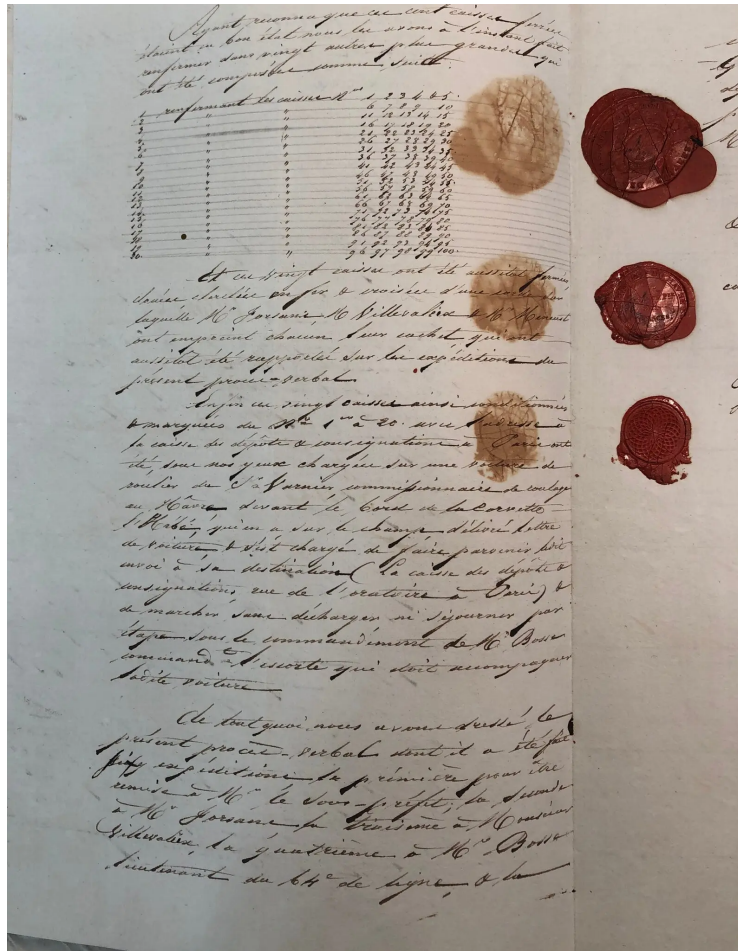 Ayant reconnu que ces cent caisses ferrées
étaient en bon état nous les avons à l'instant fait
renfermer dans vingt autres plus grandes qui
ont été composées comme suit.
1 renfermant les caisses Nos 1, 2 3 4 & 5.
" 6 7 8 9 10
" 11 12 13 14 15
" 16 17 18 19 20
" 21 22 23 24 25
" 26 27 28 29 30
" 31 32 33 34 35
" 36 37 38 39 40
" 41 42 43 44 45
" 46 47 48 49 50
" 51 52 53 54 55
" 56 57 58 59 60
" 61 62 63 64 65
" 66 67 68 69 70
" 71 72 73 74 75
" 76 77 78 79 80
" 81 82 83 84 85
" 86 87 88 89 90
" 91, 92 93 94 95
20. " 96 97 98 99 100
Et ces vingt caisses ont été aussitôt fermées
clouées en fer & croisées d'une corde sur
laquelle Mr Forsans M Villevaleix & Mr
ont empreint chacun leur cachet qui ont
aussitôt été rapportés sur les expéditions du
présent procès-verbal.
Enfin ces vingt caisses ainsi conditionnées
& marquées du No 1er à 20 avec l'adresse à
la caisse des dépôts & consignations à Paris ont
été, sous nos yeux chargées sur une voiture de
roulier du Sr Varnier commissionnaire de roulage
au Hâvre devant le bord de la Corvette
l'Hébé, qu'en a sur le champ délivré lettre
de voiture & s'est chargé de faire parvenir ledit
envoi à sa destination (La caisse des dépôts &
consignations rue de l'oratoire à Paris) &
de marcher sans décharger ni séjourner par
étape sous le commandement de Mr Bosse
command t l'escorte qui doit accompagner
ladite voiture
De tout quoi nous avons dressé le
présent procès-verbal dont il a été fait
six expéditions la première pour être
remise à Mr le Sous-préfet; la seconde
à Mr Forsans la troisième à Monsieur
Villevaleix, la quatrième à Mr Bosse
lieutenant du 64e de ligne, & la